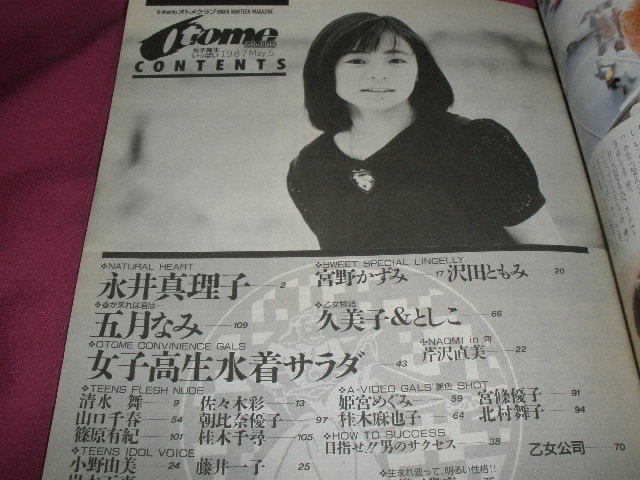 Bi-Monthly オトメクラブ UNDER NINETEEN MAGAZINE
Otome
CLUB
女子高生
いっぱい 1987 May.5
CONTENTS
❖NATURAL HEART
永井真理子 2
❖春が来れば君は…
五月なみ 109
❖OTOME CONVINIENCE GALS
女子高生水着サラダ 43
❖TEENS FLESH NUDE
清水 舞 9 佐々木彩 13
山口千春 54 朝比奈優子 97
篠原有紀 101 桂木千尋 105
❖TEENS IDOL VOICE
小野由美 24 藤井一子 25
❖SWEET SPECIAL LINGELLY
宮野かずみ 17 沢田ともみ 20
❖乙女物語
久美子&としこ 66
❖NAOMI in 旬
芹沢直美 22
❖A-VIDEO GALS 艶色 SHOT
姫宮めぐみ 59 宮條優子 91
桂木麻也子 64 北村舞子 94
❖HOW TO SUCCESS
目指せ!!男のサクセス 38
乙女公司 70
❖生まれ変って、明るい性格!!